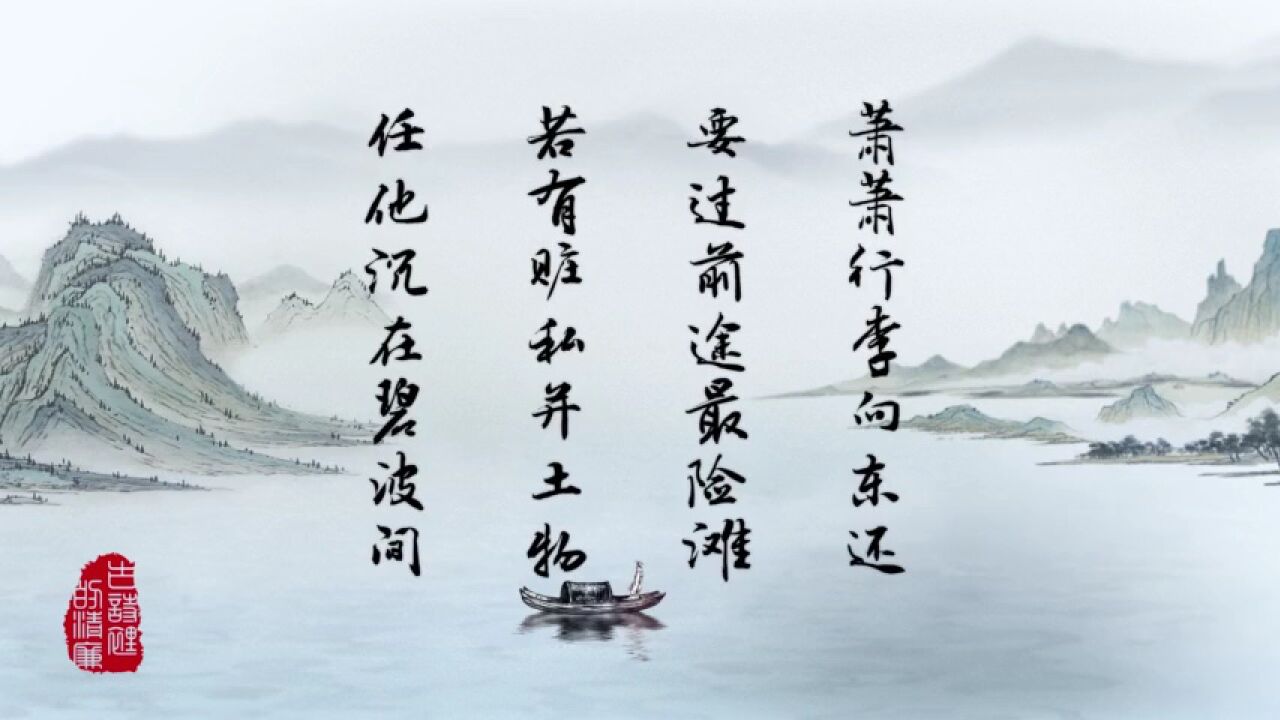 萧萧行李向东还
要过前途最险滩
若有赃私并土物
任他沉在碧波间
古詩裡
的清廉